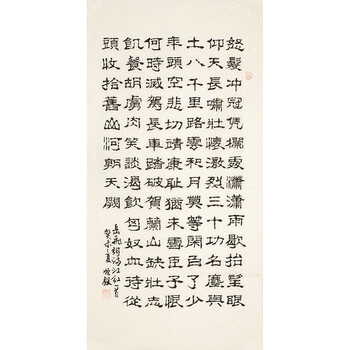 怒髮冲冠凭欄處瀟瀟雨歇抬望眼
仰天長嘯壯懷激烈三十功名塵與
土八千里路雲和月莫等閑白了少
年頭空悲切靖康耻猶未雪臣子恨
何時滅駕長車踏破賀蘭山缺壯志
飢餐胡虜肉笑談渴飲匈奴血待從
頭收拾舊山河朝天闕
岳飛詞滿江紅一首
癸未之夏